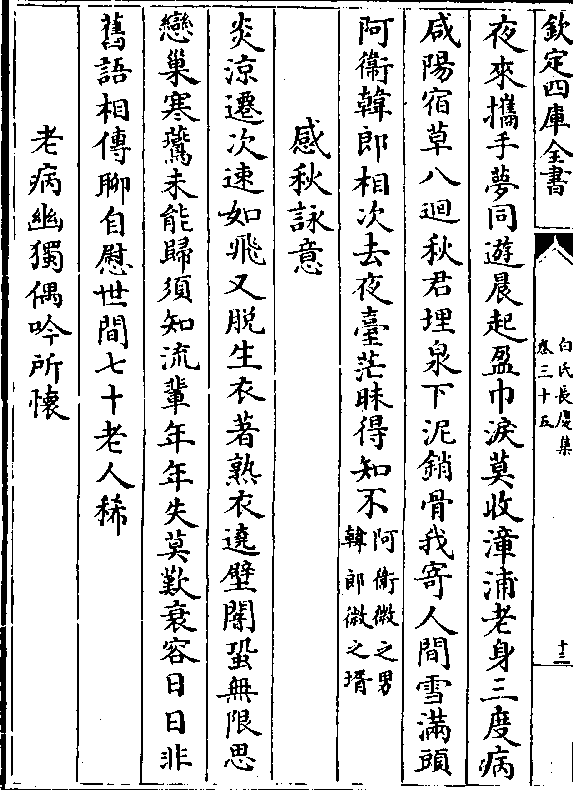 欽定四庫全書
白氏長慶集
卷三十五
十三
夜來攜手夢同遊晨起盈巾淚莫收漳浦老身三度病
咸陽宿草八迴秋君埋泉下泥銷骨我寄人間雪滿頭
阿衞韓郎相次去夜臺茫昧得知不阿衞微之男韓郎微之壻
感秋詠意
炎涼遷次速如飛又脱生衣著熟衣遶壁闇蛩無限思
戀巢寒鷰未能歸須知流輩年年失莫歎衰容日日非
舊語相傳聊自慰世間七十老人稀
老病幽獨偶吟所懷